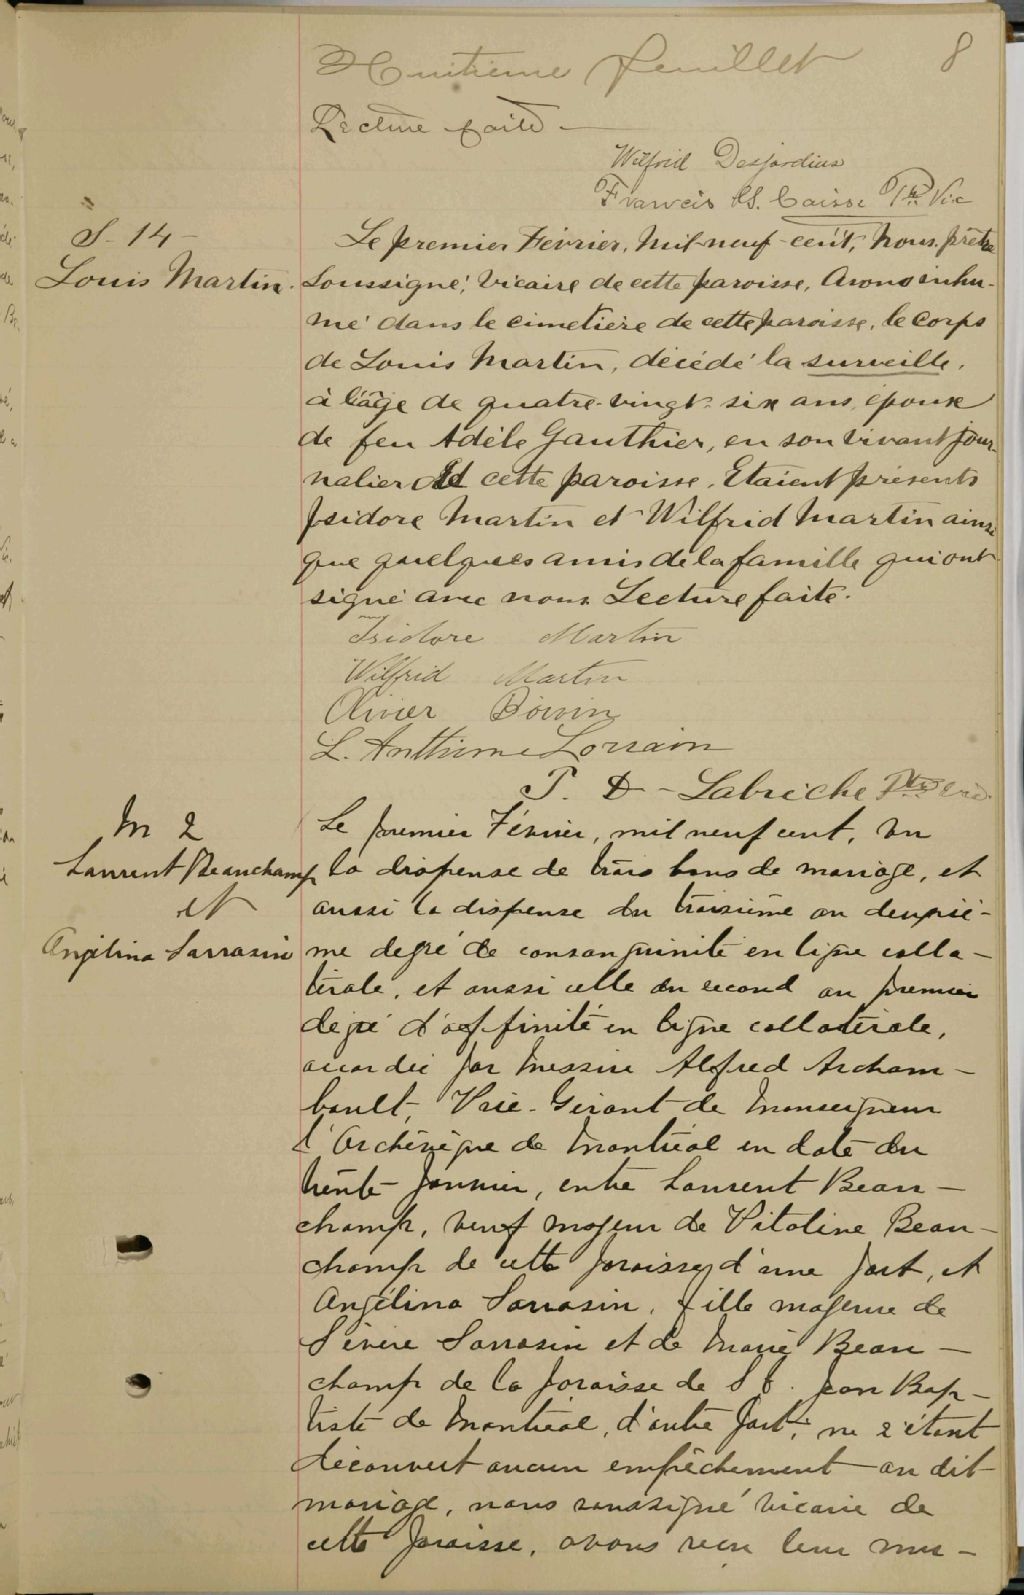 Huitième feuillet 8
Lecture faite
Wilfrid Desjardins
Francis Caisse Ptre Vic
S-14-
Louis Martin.
Le premier Février, mil neuf-cent, Nous, prêtre
soussigné, vicaire de cette paroisse, avons inhu-
mé dans le cimetière de cette paroisse, le corps
de Louis Martin, décédé la surveille,
à l'âge de quatre-vingt-six ans, époux
de feu Adèle Gauthier, en son vivant jour-
nalier de cette paroisse. Etaient présents
Isidore Martin et Wilfrid Martin ainsi
que quelques amis de la famille qui ont
signé avec nous. Lecture faite.
Isidore Martin
Wilfrid Martin
Olivier Boivin
L. Anthime Lorrain
P. D-Labriche Ptre vic.
M 2
Laurent Beauchamp
et
Angélina Sarrasin
Le premier Février, mil neuf cent, vu
la dispense de trois bans de mariage, et
aussi la dispense du troisième au deuxiè-
me degré de consanguinité en ligne colla-
térale, et aussi celle du second au premier
degré d'affinité en ligne collatérale,
accordée par Messire Alfred Archam-
bault, Vice-Gérant de Monseigneur
l'Archévêque de Montréal en date du
trente Janvier, entre Laurent Beau-
champ, veuf majeur de Vitaline Beau-
champ de cette paroisse, d'une part, et
Angélina Sarrasin, fille majeure de
Sévère Sarrasin et de Marie Beau-
champ de la paroisse de St. Jean Bap-
tiste de Montréal, d'autre part; ne s'étant
découvert aucun empêchement au dit
mariage, nous soussigné vicaire de
cette paroisse, avons reçu leur mu-